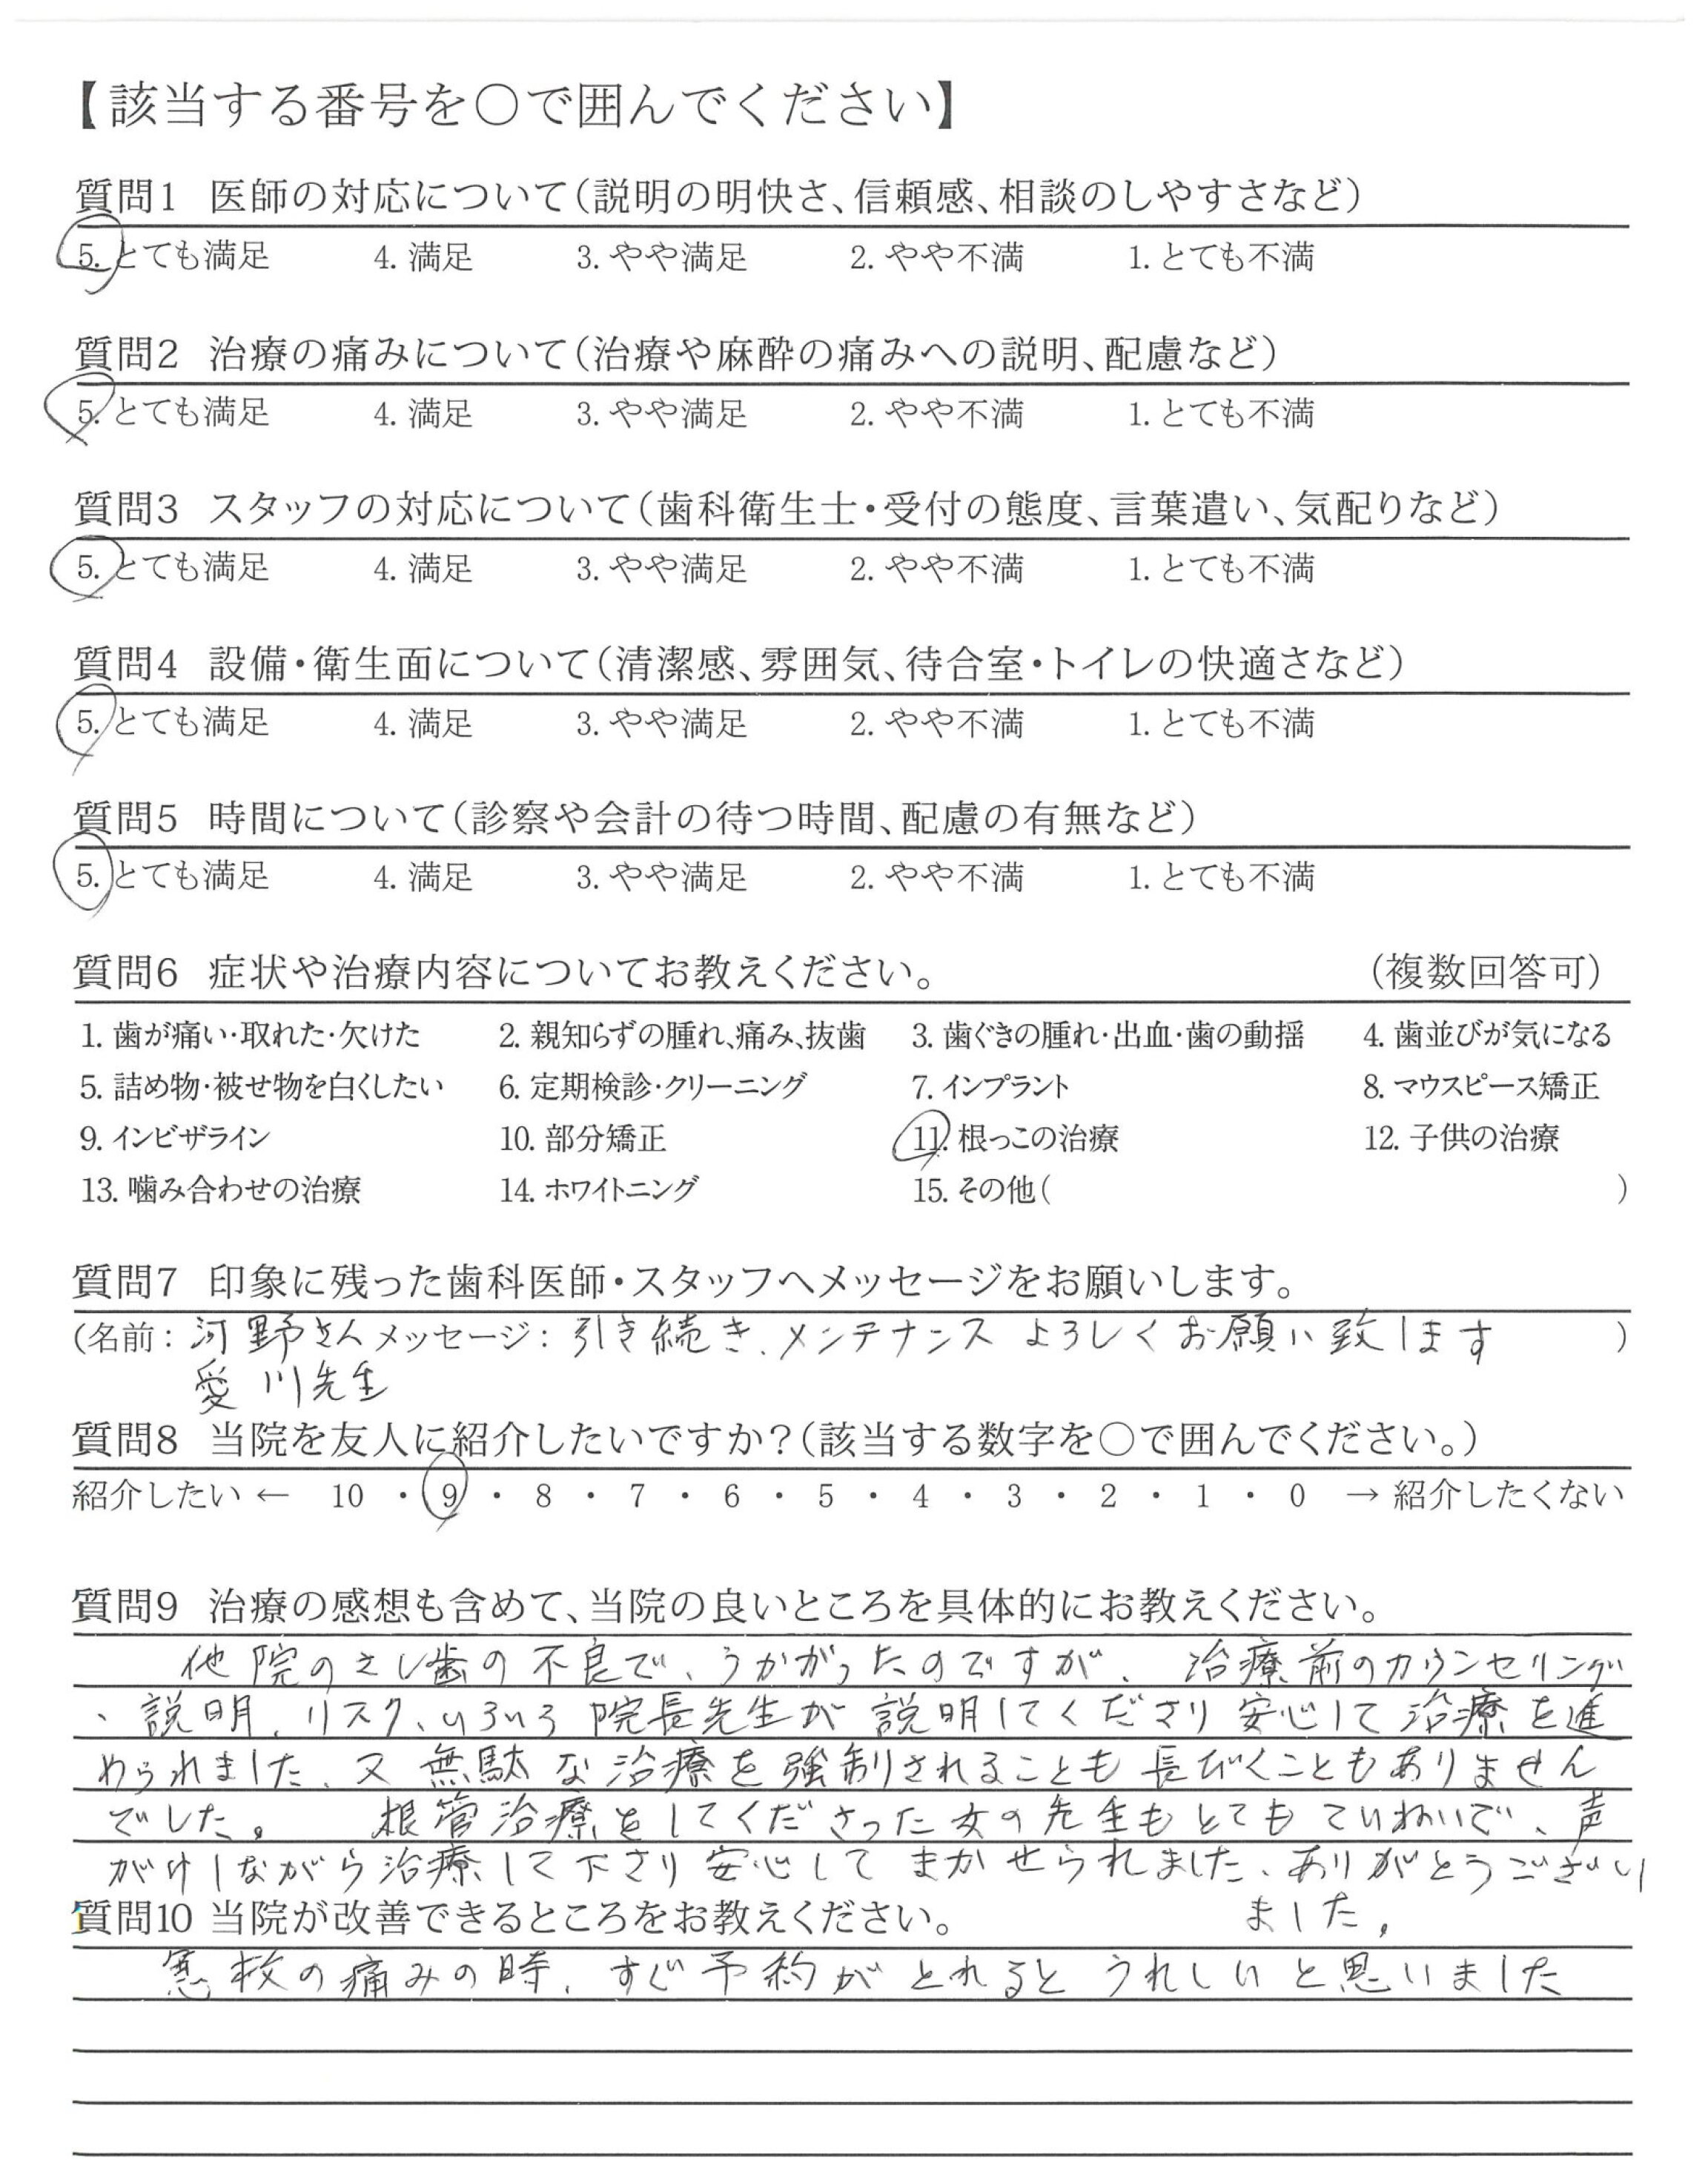 【該当する番号を○で囲んでください】
質問1 医師の対応について（説明の明快さ、信頼感、相談のしやすさなど）
5. とても満足 4. 満足 3. やや満足 2. やや不満 1. とても不満
質問2 治療の痛みについて（治療や麻酔の痛みへの説明、配慮など）
5. とても満足 4. 満足 3. やや満足 2. やや不満 1. とても不満
質問3 スタッフの対応について（歯科衛生士・受付の態度、言葉遣い、気配りなど）
5. とても満足 4. 満足 3. やや満足 2. やや不満 1. とても不満
質問4 設備・衛生面について（清潔感、雰囲気、待合室・トイレの快適さなど）
5. とても満足 4. 満足 3. やや満足 2. やや不満 1. とても不満
質問5 時間について（診察や会計の待つ時間、配慮の有無など）
5. とても満足 4. 満足 3. やや満足 2. やや不満 1. とても不満
質問6 症状や治療内容についてお教えください。 （複数回答可）
1. 歯が痛い・取れた・欠けた 2. 親知らずの腫れ、痛み、抜歯 3. 歯ぐきの腫れ・出血・歯の動揺 4. 歯並びが気になる
5. 詰め物・被せ物を白くしたい 6. 定期検診・クリーニング 7. インプラント 8. マウスピース矯正
9. インビザライン 10. 部分矯正 11. 根っこの治療 12. 子供の治療
13. 噛み合わせの治療 14. ホワイトニング 15. その他（ ）
質問7 印象に残った歯科医師・スタッフへメッセージをお願いします。
（名前：河野さん メッセージ：引き続き、メンテナンス よろしくお願い致します ）
愛川先生
質問8 当院を友人に紹介したいですか？（該当する数字を○で囲んでください。）
紹介したい ← 10 ・ 9 ・ 8 ・ 7 ・ 6 ・ 5 ・ 4 ・ 3 ・ 2 ・ 1 ・ 0 → 紹介したくない
質問9 治療の感想も含めて、当院の良いところを具体的にお教えください。
他院のさし歯の不良で、うかがったのですが、治療前のカウンセリング
、説明、リスク、いろいろ院長先生が説明してくださり安心して治療を進
められました、又無駄な治療を強制されることも長びくこともありません
でした。 根管治療をしてくださった女の先生もとてもていねいで、声
がけしながら治療して下さり安心してまかせられました、ありがとうござい
ました。
質問10 当院が改善できるところをお教えください。
急救の痛みの時、すぐ予約がとれるとうれしいと思いました